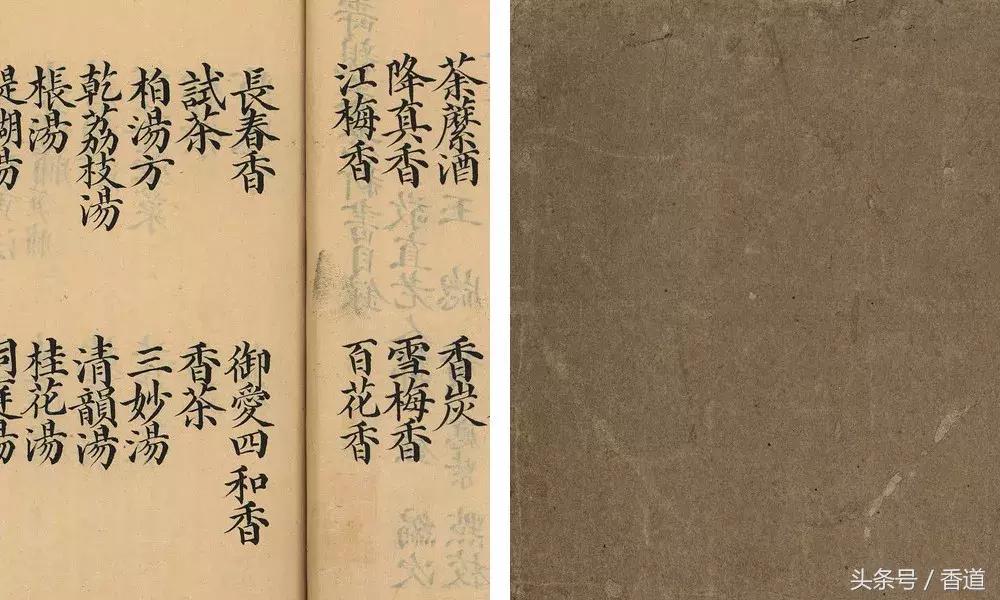 荼䕷酒　香炭
降真香　雪梅香
江梅香　百花香
長春香　御愛四和香
試茶　香茶
柏湯方　三妙湯
乾荔枝湯　清韻湯
棖湯　桂花湯
头条号 / 香道